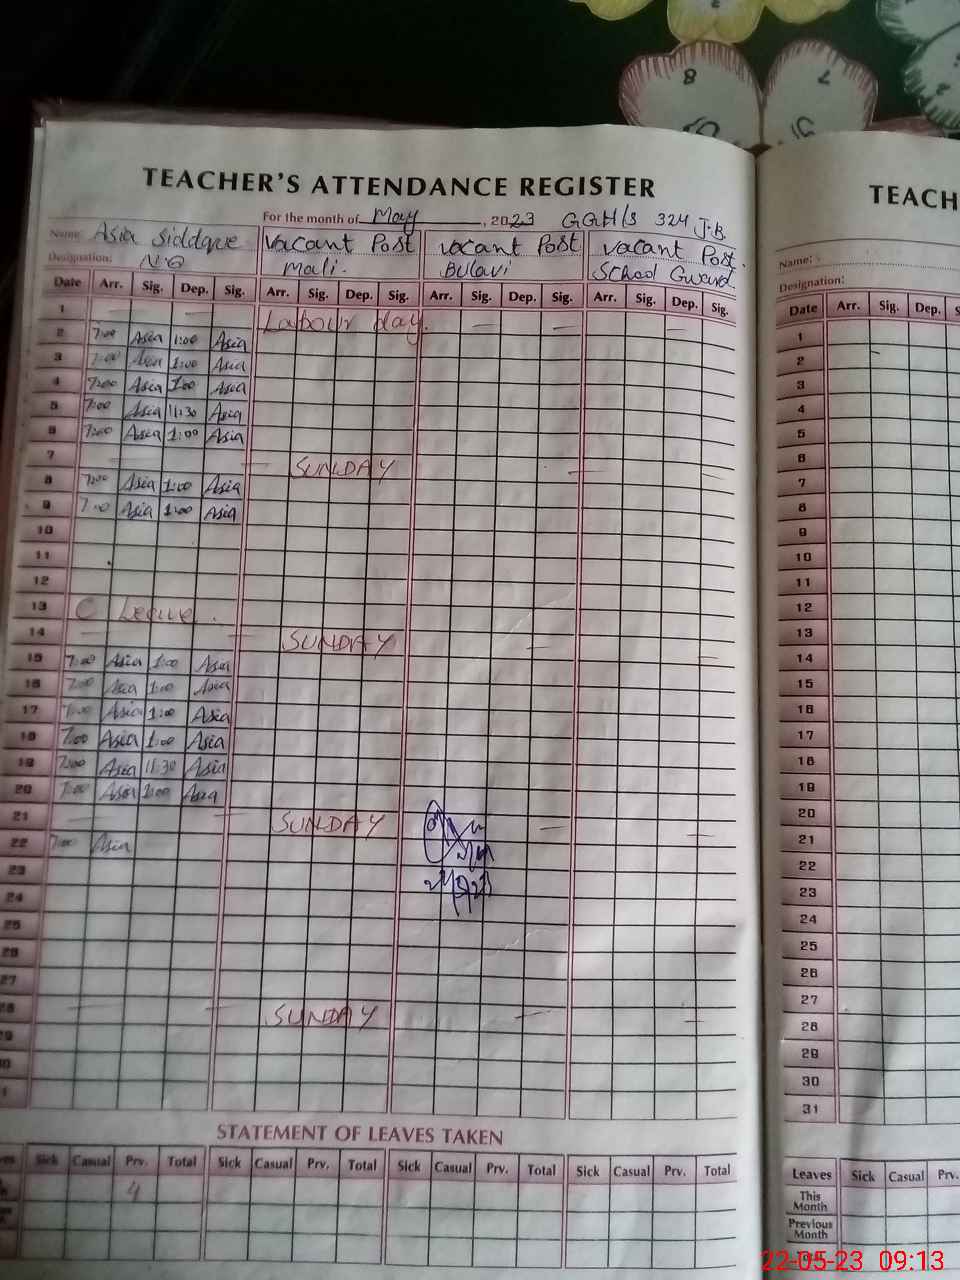 8 7
TEACHER'S ATTENDANCE REGISTER
For the month of May, 2023 GGH/S 324 J.B.
Name: Asia Siddque vacant Post vacant Post vacant Post.
Designation: N.Q Mali. Bulavi School Gward
Date Arr. Sig. Dep. Sig. Arr. Sig. Dep. Sig. Arr. Sig. Dep. Sig. Arr. Sig. Dep. Sig.
1 Labour day.
2 7:00 Asia 1:00 Asia
3 7:00 Asia 1:00 Asia
4 7:00 Asia 1:00 Asia
5 7:00 Asia 11:30 Asia
6 7:00 Asia 1:00 Asia
7 SUNDAY
8 7:00 Asia 1:00 Asia
9 7:00 Asia 1:00 Asia
10
11
12
13 C Leave.
14 SUNDAY
15 7:00 Asia 1:00 Asia
16 7:00 Asia 1:00 Asia
17 7:00 Asia 1:00 Asia
18 7:00 Asia 1:00 Asia
19 7:00 Asia 11:30 Asia
20 7:00 Asia 1:00 Asia
21 SUNDAY
22 7:00 Asia
23
24
25
26
27
28 SUNDAY
29
30
1
STATEMENT OF LEAVES TAKEN
Sick Casual Prv. Total Sick Casual Prv. Total Sick Casual Prv. Total Sick Casual Prv. Total
4
TEACH
Name:
Designation:
Date Arr. Sig. Dep. S
1
2
3
4
5
6
7
8
9
10
11
12
13
14
15
16
17
18
19
20
21
22
23
24
25
26
27
28
29
30
31
Leaves Sick Casual Prv.
This Month
Previous Month
22-05-23 09:13